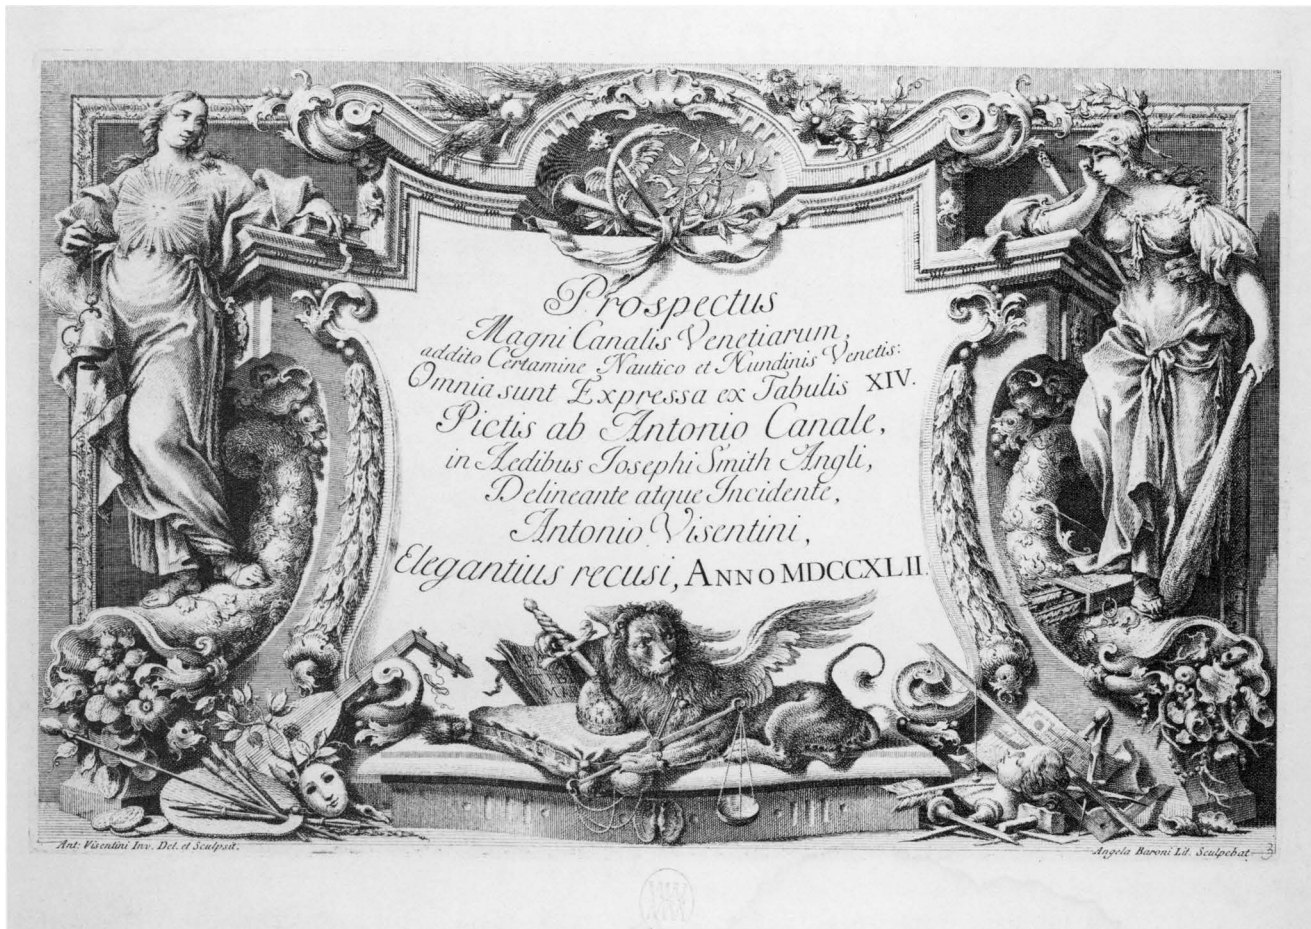 Prospectus
Magni Canalis Venetiarum,
addito Certamine Nautico et Nundinis Venetis:
Omnia sunt Expressa ex Tabulis XIV.
Pictis ab Antonio Canale,
in Aedibus Josephi Smith Angli,
Delineante atque Incidente,
Antonio Visentini,
Elegantius recusi, ANNO MDCCXLII.
Ant: Visentini Inv. Del. et Sculpsit.
Angela Baroni Lit. Sculpebat
3